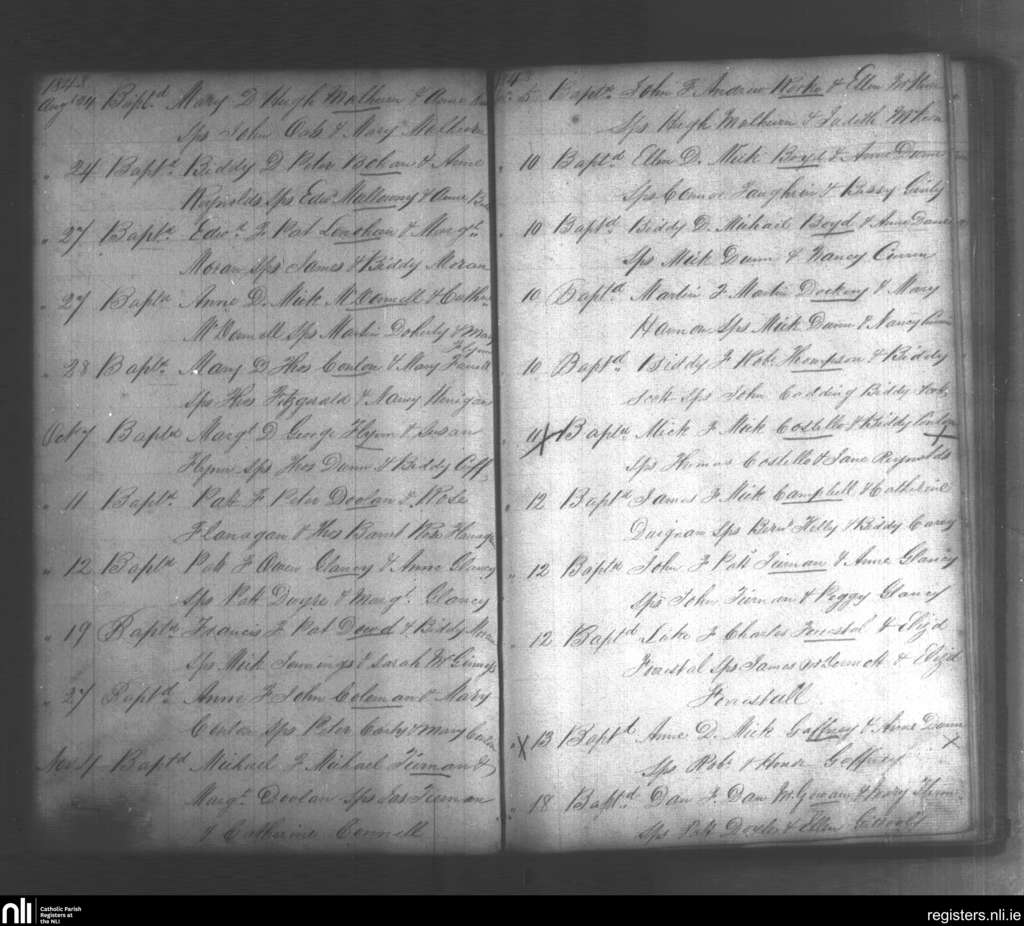 1843
Aug 24 Baptd Mary D Hugh Mulhern & Anne
Sps John Oats & Mary Mulhern
" 24 Baptd Biddy D Peter Bohan & Anne
Reynolds Sps Edwd Mulloowny & Anne
" 27 Baptd Edwd F Pat Lenehan & Margt
Moran Sps James & Biddy Moran
" 27 Baptd Anne D. Mick McDonnell & Cathne
McDonnell Sps Martin Doherty & Mary
Flynn
" 28 Baptd Mary D Thos Conlon & Mary Farrell
Sps Thos Fitzgerald & Nancy Henigan
Oct 7 Baptd Margt D George Flynn & Susan
Flynn Sps Thos Dunn & Biddy
" 11 Baptd Patt F Peter Doolan & Rose
Flanagan & Thos Rose
" 12 Baptd Patt F Owen Glancy & Anne Glancy
Sps Patt & Margt Glancy
" 19 Baptd Francis F Pat Dowd & Biddy
Sps Mick Jennings & Sarah McGinniss
" 27 Baptd Anne F John Coleman & Mary
Conlon Sps Peter & Mary Conlon
Nov 4 Baptd Michael F Michael Tiernan &
Margt Doolan Sps Jas Tiernan
& Catherine Connell
" 5 Baptd John F Andrew & Ellen
Sps Hugh Mulhern & Judith
" 10 Baptd Ellen D. Mick Boyd & Anne Dunn
Sps Connor & Bessy
" 10 Baptd Biddy D. Michael Boyd & Anne Dunn
Sps Mick Dunn & Nancy
10 Baptd Martin F Martin Dockery & Mary
Sps Mick Dunn & Nancy
10 Baptd Biddy F Robt Thompson & Biddy
Scott Sps John Codding Biddy Scott
" 11 X Baptd Mick F Mick Costello & Biddy Conlon
Sps Thomas Costello & Jane Reynolds
" 12 Baptd James F Mick Campbell & Catherine
Duignan Sps Bernd & Biddy Carey
" 12 Baptd John F Patt Tiernan & Anne Glancy
Sps John Tiernan & Peggy Glancy
12 Baptd Luke F Charles Forestal & Elizd
Forestal Sps James McDermott & Elizd
Forestall
" X 13 Baptd Anne D. Mick Gaffney & Anne Dunn X
Sps Robt & Honor Gaffney
" 18 Baptd Dan F. Dan McGowan & Mary
Sps Patt & Ellen
nli
Catholic Parish
Registers at
the NLI
registers.nli.ie